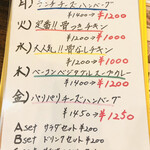 ランチチーズハンバーグ
¥1400→¥1200
火) 定番!! 骨つきチキン
¥1200→¥1000
水) 大人気!! 骨なしチキン
¥1200→¥1000
木) ベーコンベジタブルスープカレー
¥1400→¥1200
金) パリパリチーズハンバーグ
¥1450→¥1250
A set サラダセット ¥200
B set ドリンクセット ¥200